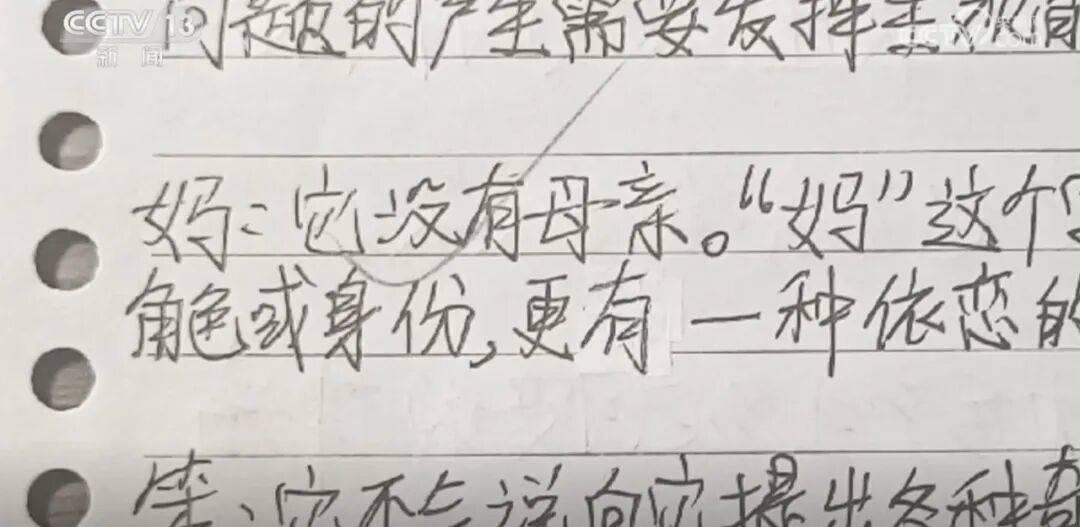 CCTV 13
新闻
CCTV.com
问题的产生需要发挥主观
妈：它没有母亲。“妈”这个
角色或身份，更有一种依恋的
笨：它不会说向它提出各种奇